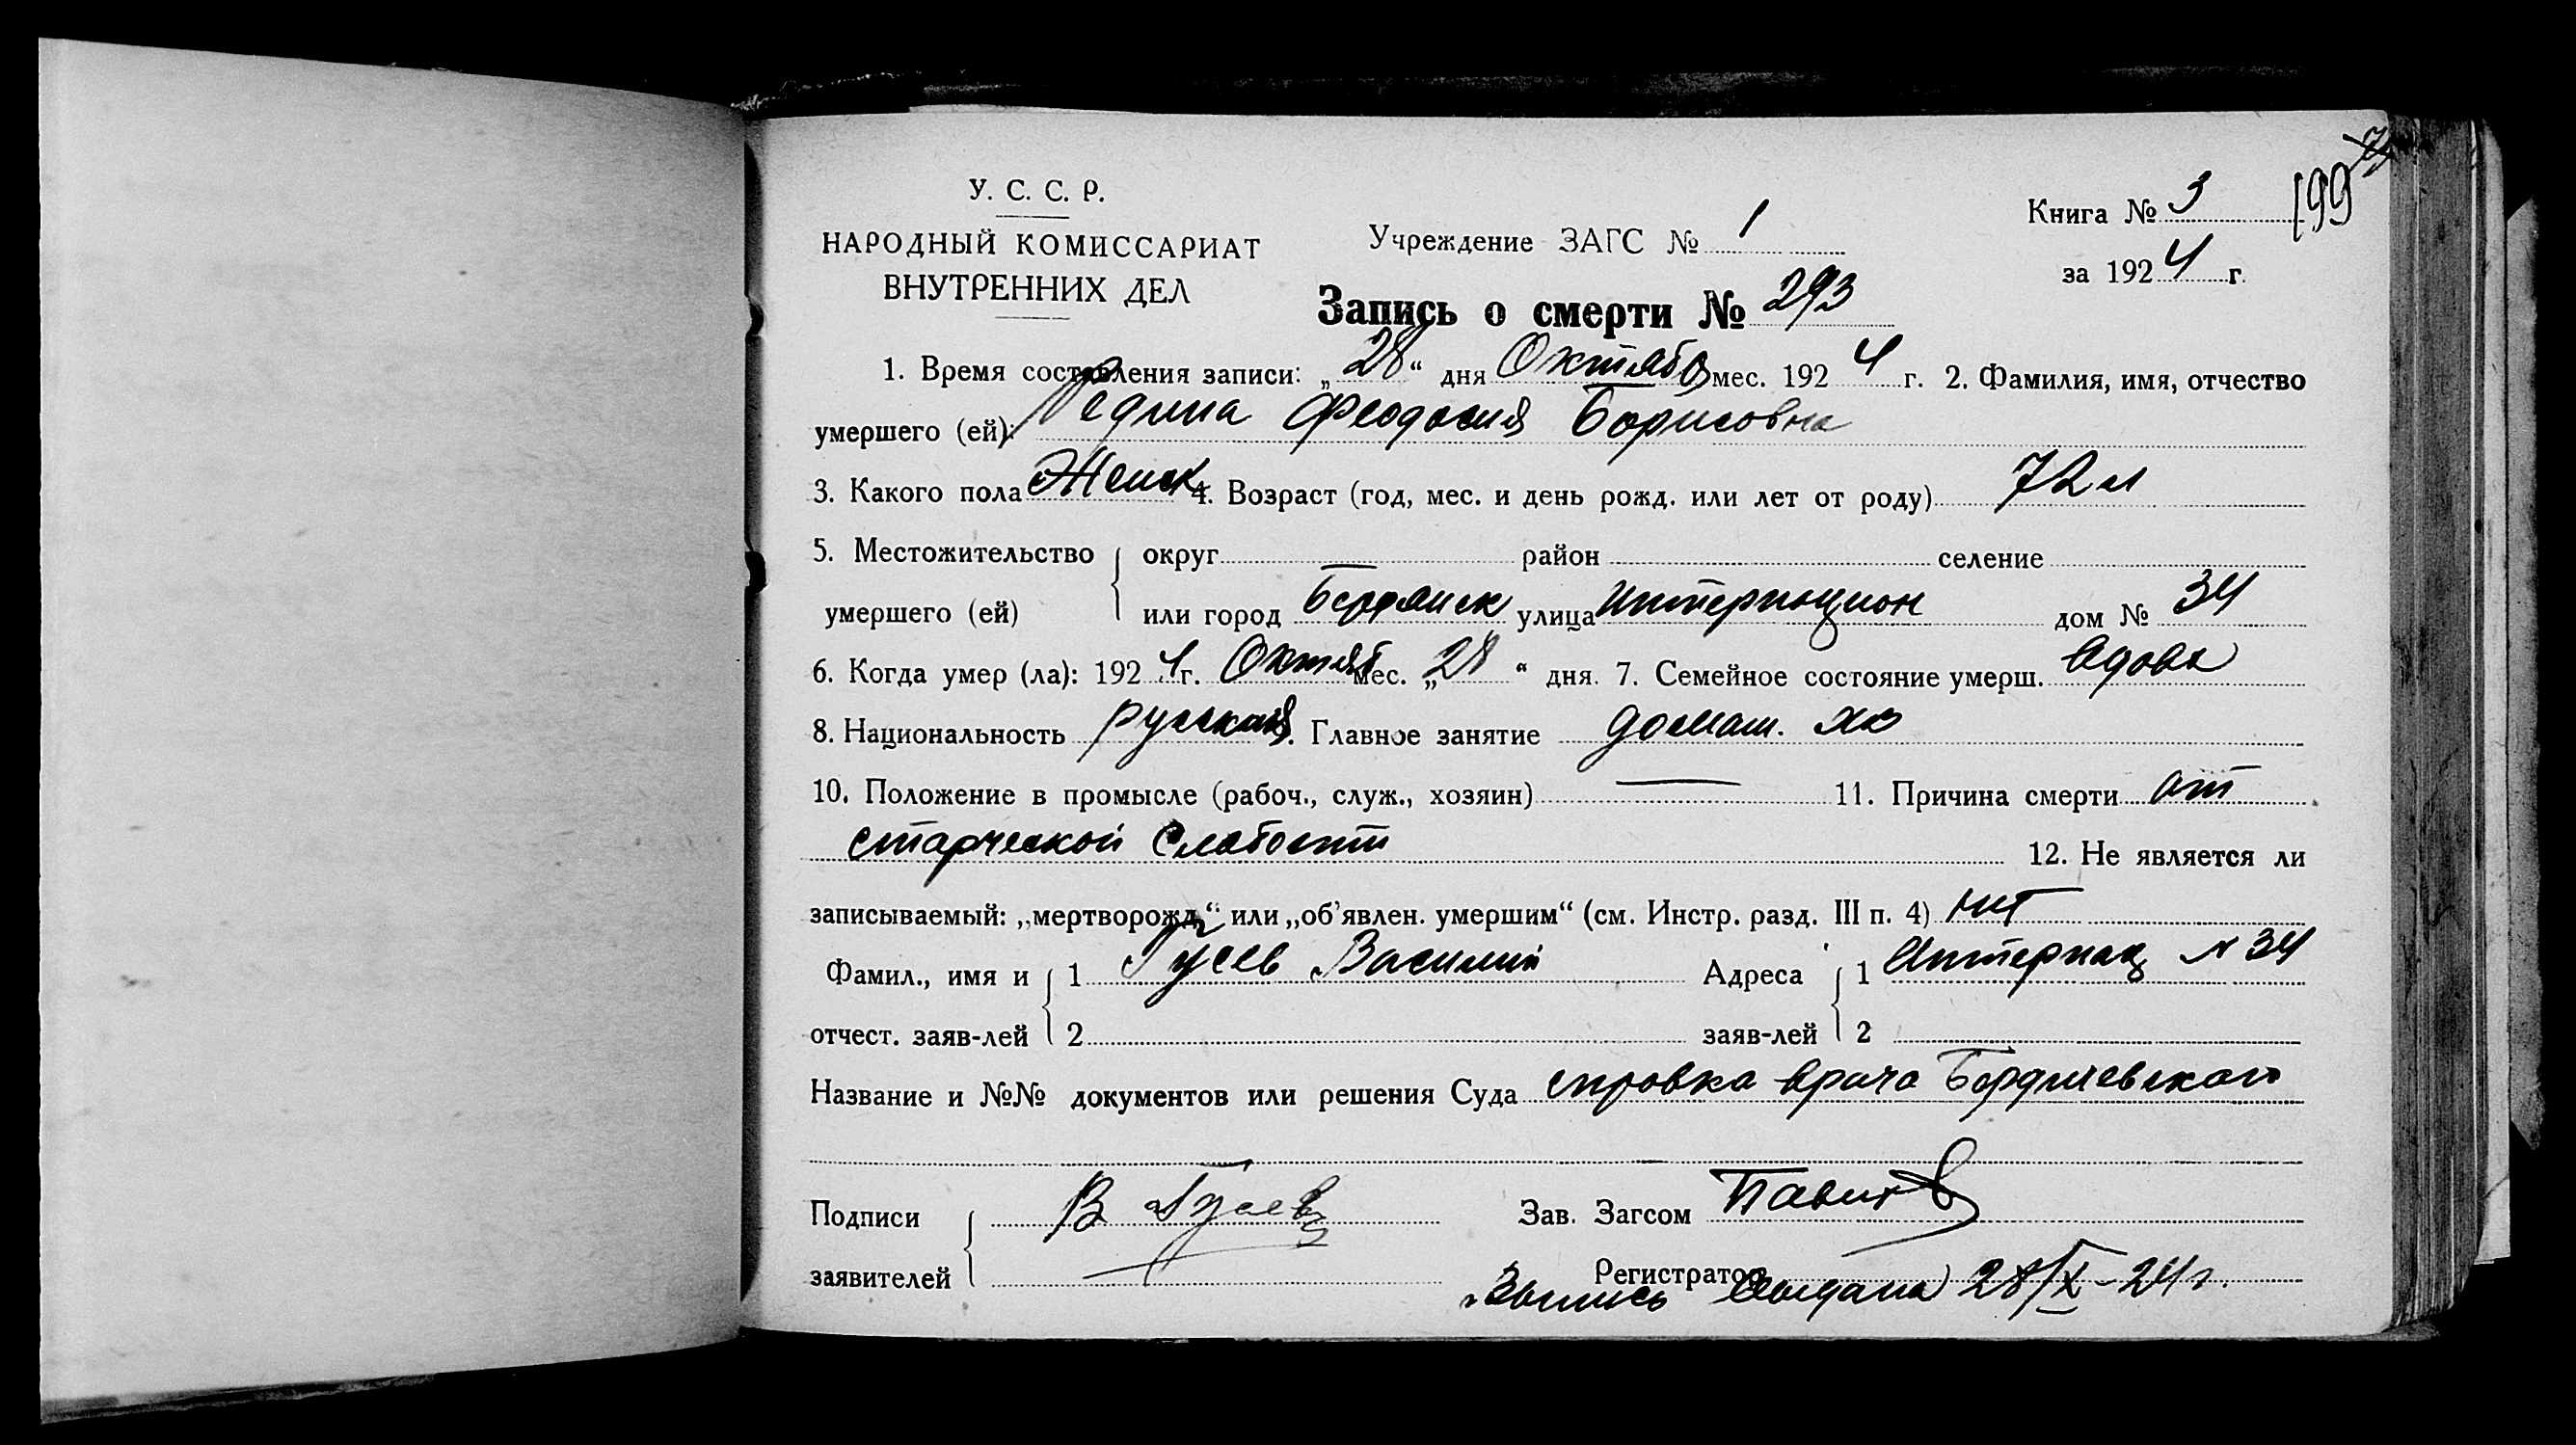 У. С. С. Р.
НАРОДНЫЙ КОМИССАРИАТ
ВНУТРЕННИХ ДЕЛ
Учреждение ЗАГС № 1
Книга № 3
199
за 1924 г.
Запись о смерти № 293
1. Время составления записи: „28“ дня Октября мес. 1924 г. 2. Фамилия, имя, отчество
умершего (ей): Редина Феодосия Борисовна
3. Какого пола Женск 4. Возраст (год, мес. и день рожд. или лет от роду) 72 л
5. Местожительство округ район селение
умершего (ей) или город Бердянск улица Интернацион дом № 34
6. Когда умер (ла): 1924 г. Октяб мес. „28“ дня. 7. Семейное состояние умерш. вдова
8. Национальность русская 9. Главное занятие домаш. хоз
10. Положение в промысле (рабоч., служ., хозяин) — 11. Причина смерти от
старческой слабости 12. Не является ли
записываемый: „мертворожд.“ или „об'явлен. умершим“ (см. Инстр. разд. III п. 4) нет
Фамил., имя и 1 Гусев Василий Адреса 1 Интернац № 34
отчест. заяв-лей 2 заяв-лей 2
Название и №№ документов или решения Суда справка врача Бердичевского
Подписи В Гусев Зав. Загсом
заявителей Регистратор
Выпись выдана 28/X-24 г.